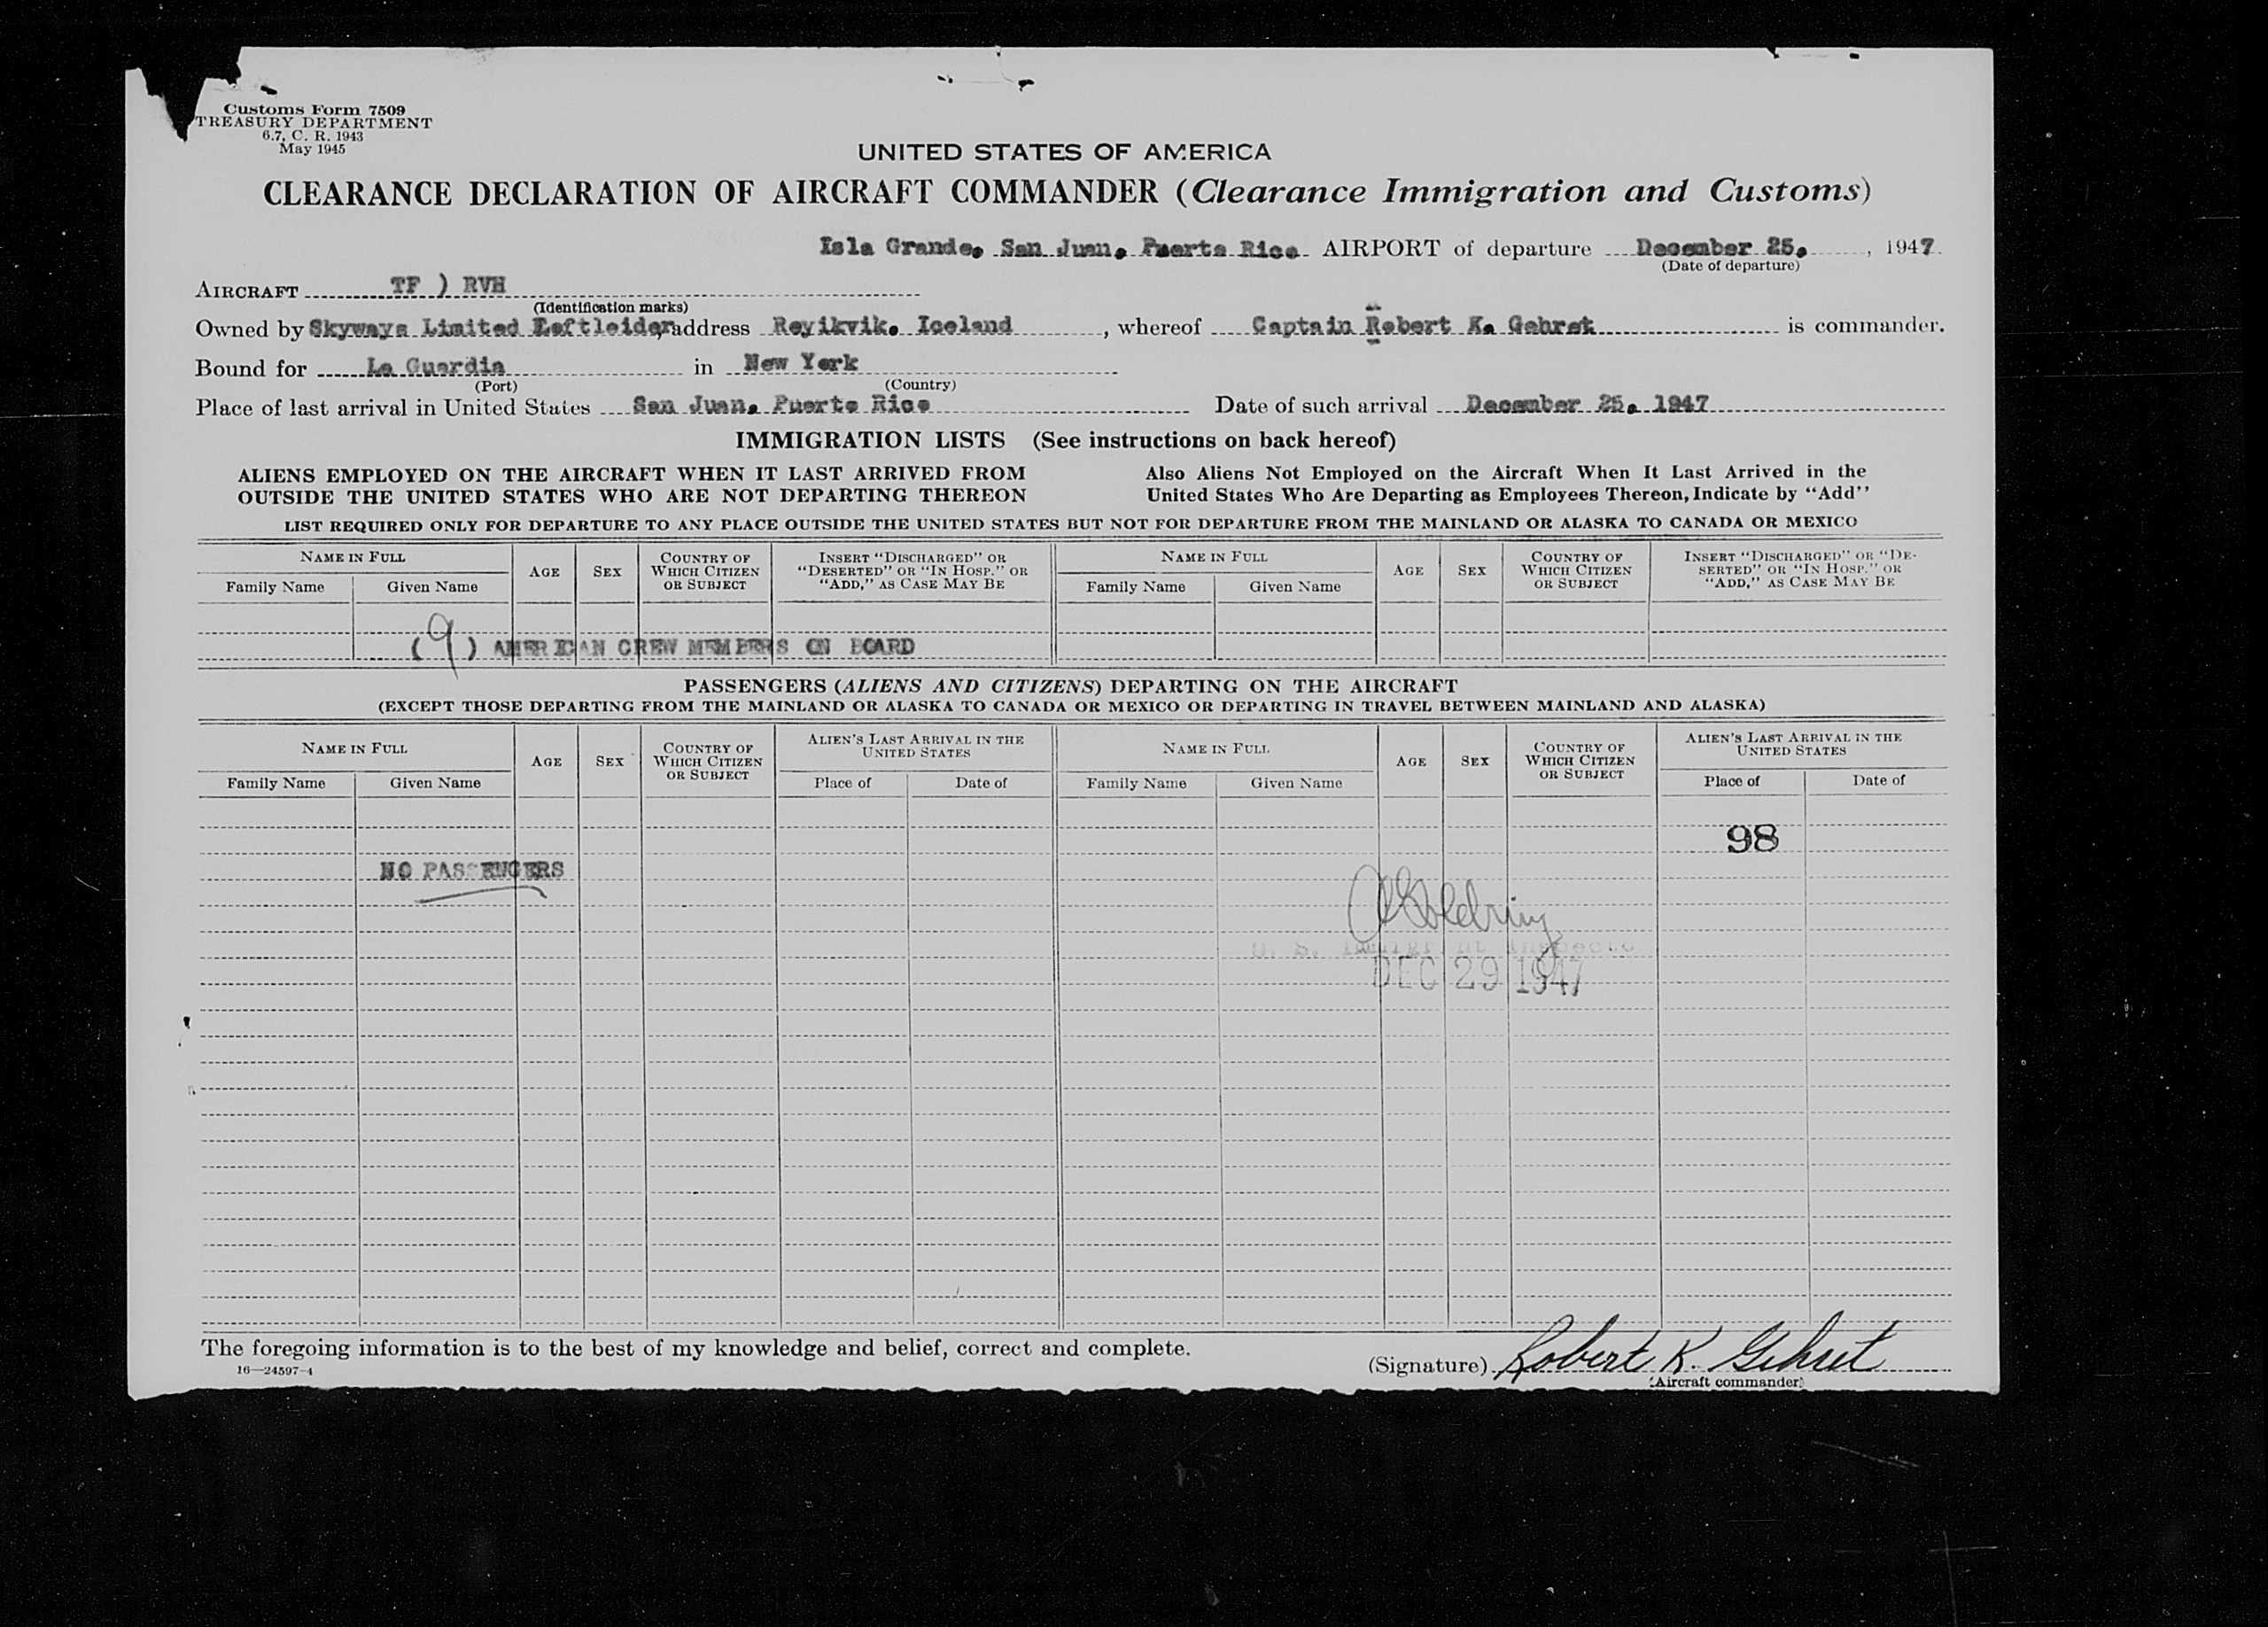 Customs Form 7509
TREASURY DEPARTMENT
6.7, C. R. 1943
May 1945
UNITED STATES OF AMERICA
CLEARANCE DECLARATION OF AIRCRAFT COMMANDER (Clearance Immigration and Customs)
Isla Grande, San Juan, Puerto Rico AIRPORT of departure December 25, , 1947.
(Date of departure)
AIRCRAFT TF ) RVH
(Identification marks)
Owned by Skyways Limited Loftleider, address Reyikvik, Iceland , whereof Captain Robert K. Gehret is commander.
Bound for La Guardia in New York
(Port) (Country)
Place of last arrival in United States San Juan, Puerto Rico Date of such arrival December 25, 1947
IMMIGRATION LISTS (See instructions on back hereof)
ALIENS EMPLOYED ON THE AIRCRAFT WHEN IT LAST ARRIVED FROM OUTSIDE THE UNITED STATES WHO ARE NOT DEPARTING THEREON
Also Aliens Not Employed on the Aircraft When It Last Arrived in the United States Who Are Departing as Employees Thereon, Indicate by "Add"
LIST REQUIRED ONLY FOR DEPARTURE TO ANY PLACE OUTSIDE THE UNITED STATES BUT NOT FOR DEPARTURE FROM THE MAINLAND OR ALASKA TO CANADA OR MEXICO
NAME IN FULL AGE SEX COUNTRY OF WHICH CITIZEN OR SUBJECT INSERT "DISCHARGED" OR "DESERTED" OR "IN HOSP." OR "ADD," AS CASE MAY BE NAME IN FULL AGE SEX COUNTRY OF WHICH CITIZEN OR SUBJECT INSERT "DISCHARGED" OR "DE-SERTED" OR "IN HOSP." OR "ADD," AS CASE MAY BE
Family Name Given Name Family Name Given Name
(9) AMERICAN CREW MEMBERS ON BOARD
PASSENGERS (ALIENS AND CITIZENS) DEPARTING ON THE AIRCRAFT
(EXCEPT THOSE DEPARTING FROM THE MAINLAND OR ALASKA TO CANADA OR MEXICO OR DEPARTING IN TRAVEL BETWEEN MAINLAND AND ALASKA)
NAME IN FULL AGE SEX COUNTRY OF WHICH CITIZEN OR SUBJECT ALIEN'S LAST ARRIVAL IN THE UNITED STATES NAME IN FULL AGE SEX COUNTRY OF WHICH CITIZEN OR SUBJECT ALIEN'S LAST ARRIVAL IN THE UNITED STATES
Family Name Given Name Place of Date of Family Name Given Name Place of Date of
98
NO PASSENGERS
U. S.
DEC 29 1947
The foregoing information is to the best of my knowledge and belief, correct and complete.
16—24597-4
(Signature) Robert K. Gehret
(Aircraft commander)